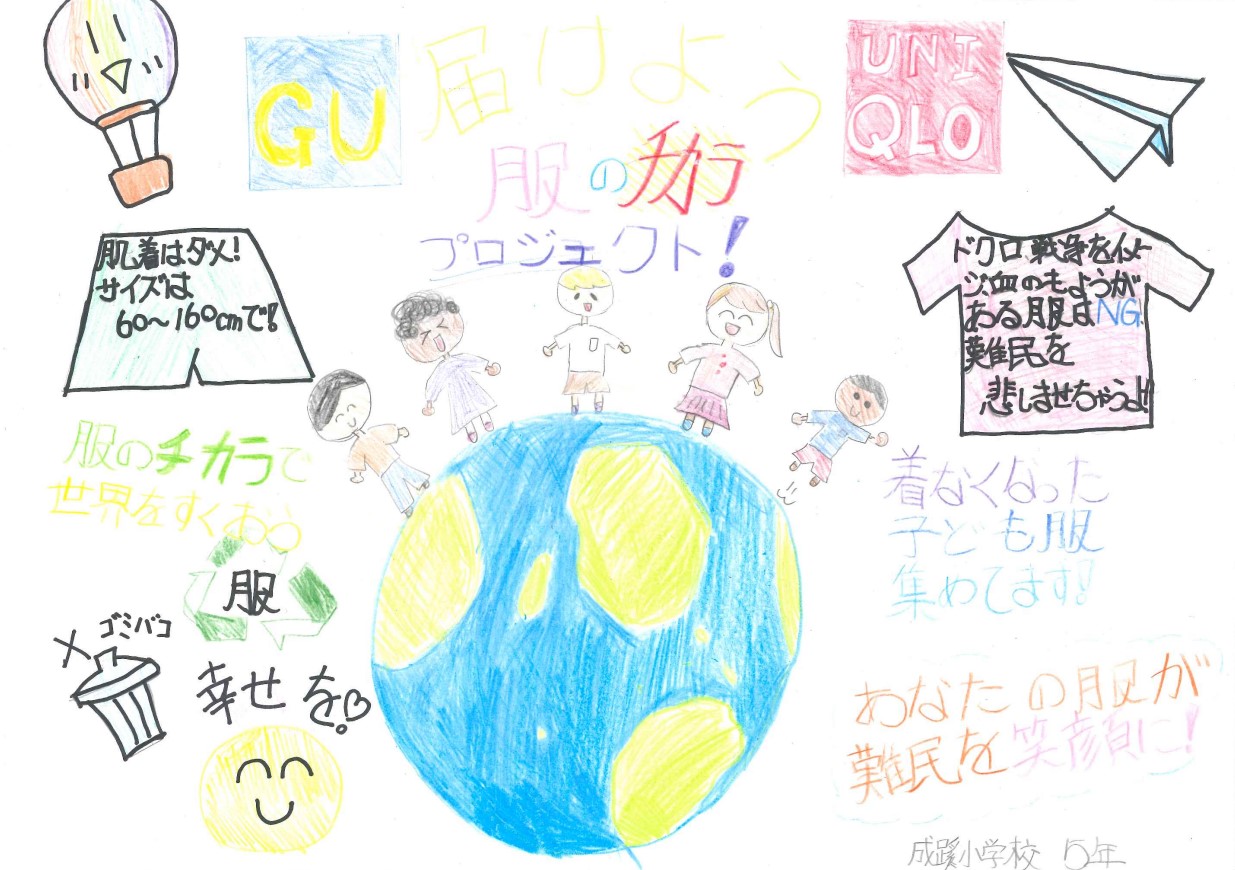 GU
届けよう
UNI
QLO
服のチカラ
プロジェクト!
肌着はダメ!
サイズは
60〜160cmで!!
ドクロ、戦争をイメー
ジ、血のもようが
ある服はNG!
難民を
悲しませちゃうよ!!
服のチカラで
世界をすくおう
服
ゴミバコ
幸せを!
着なくなった
子ども服
集めてます!
あなたの服が
難民を笑顔に!
成蹊小学校 5年